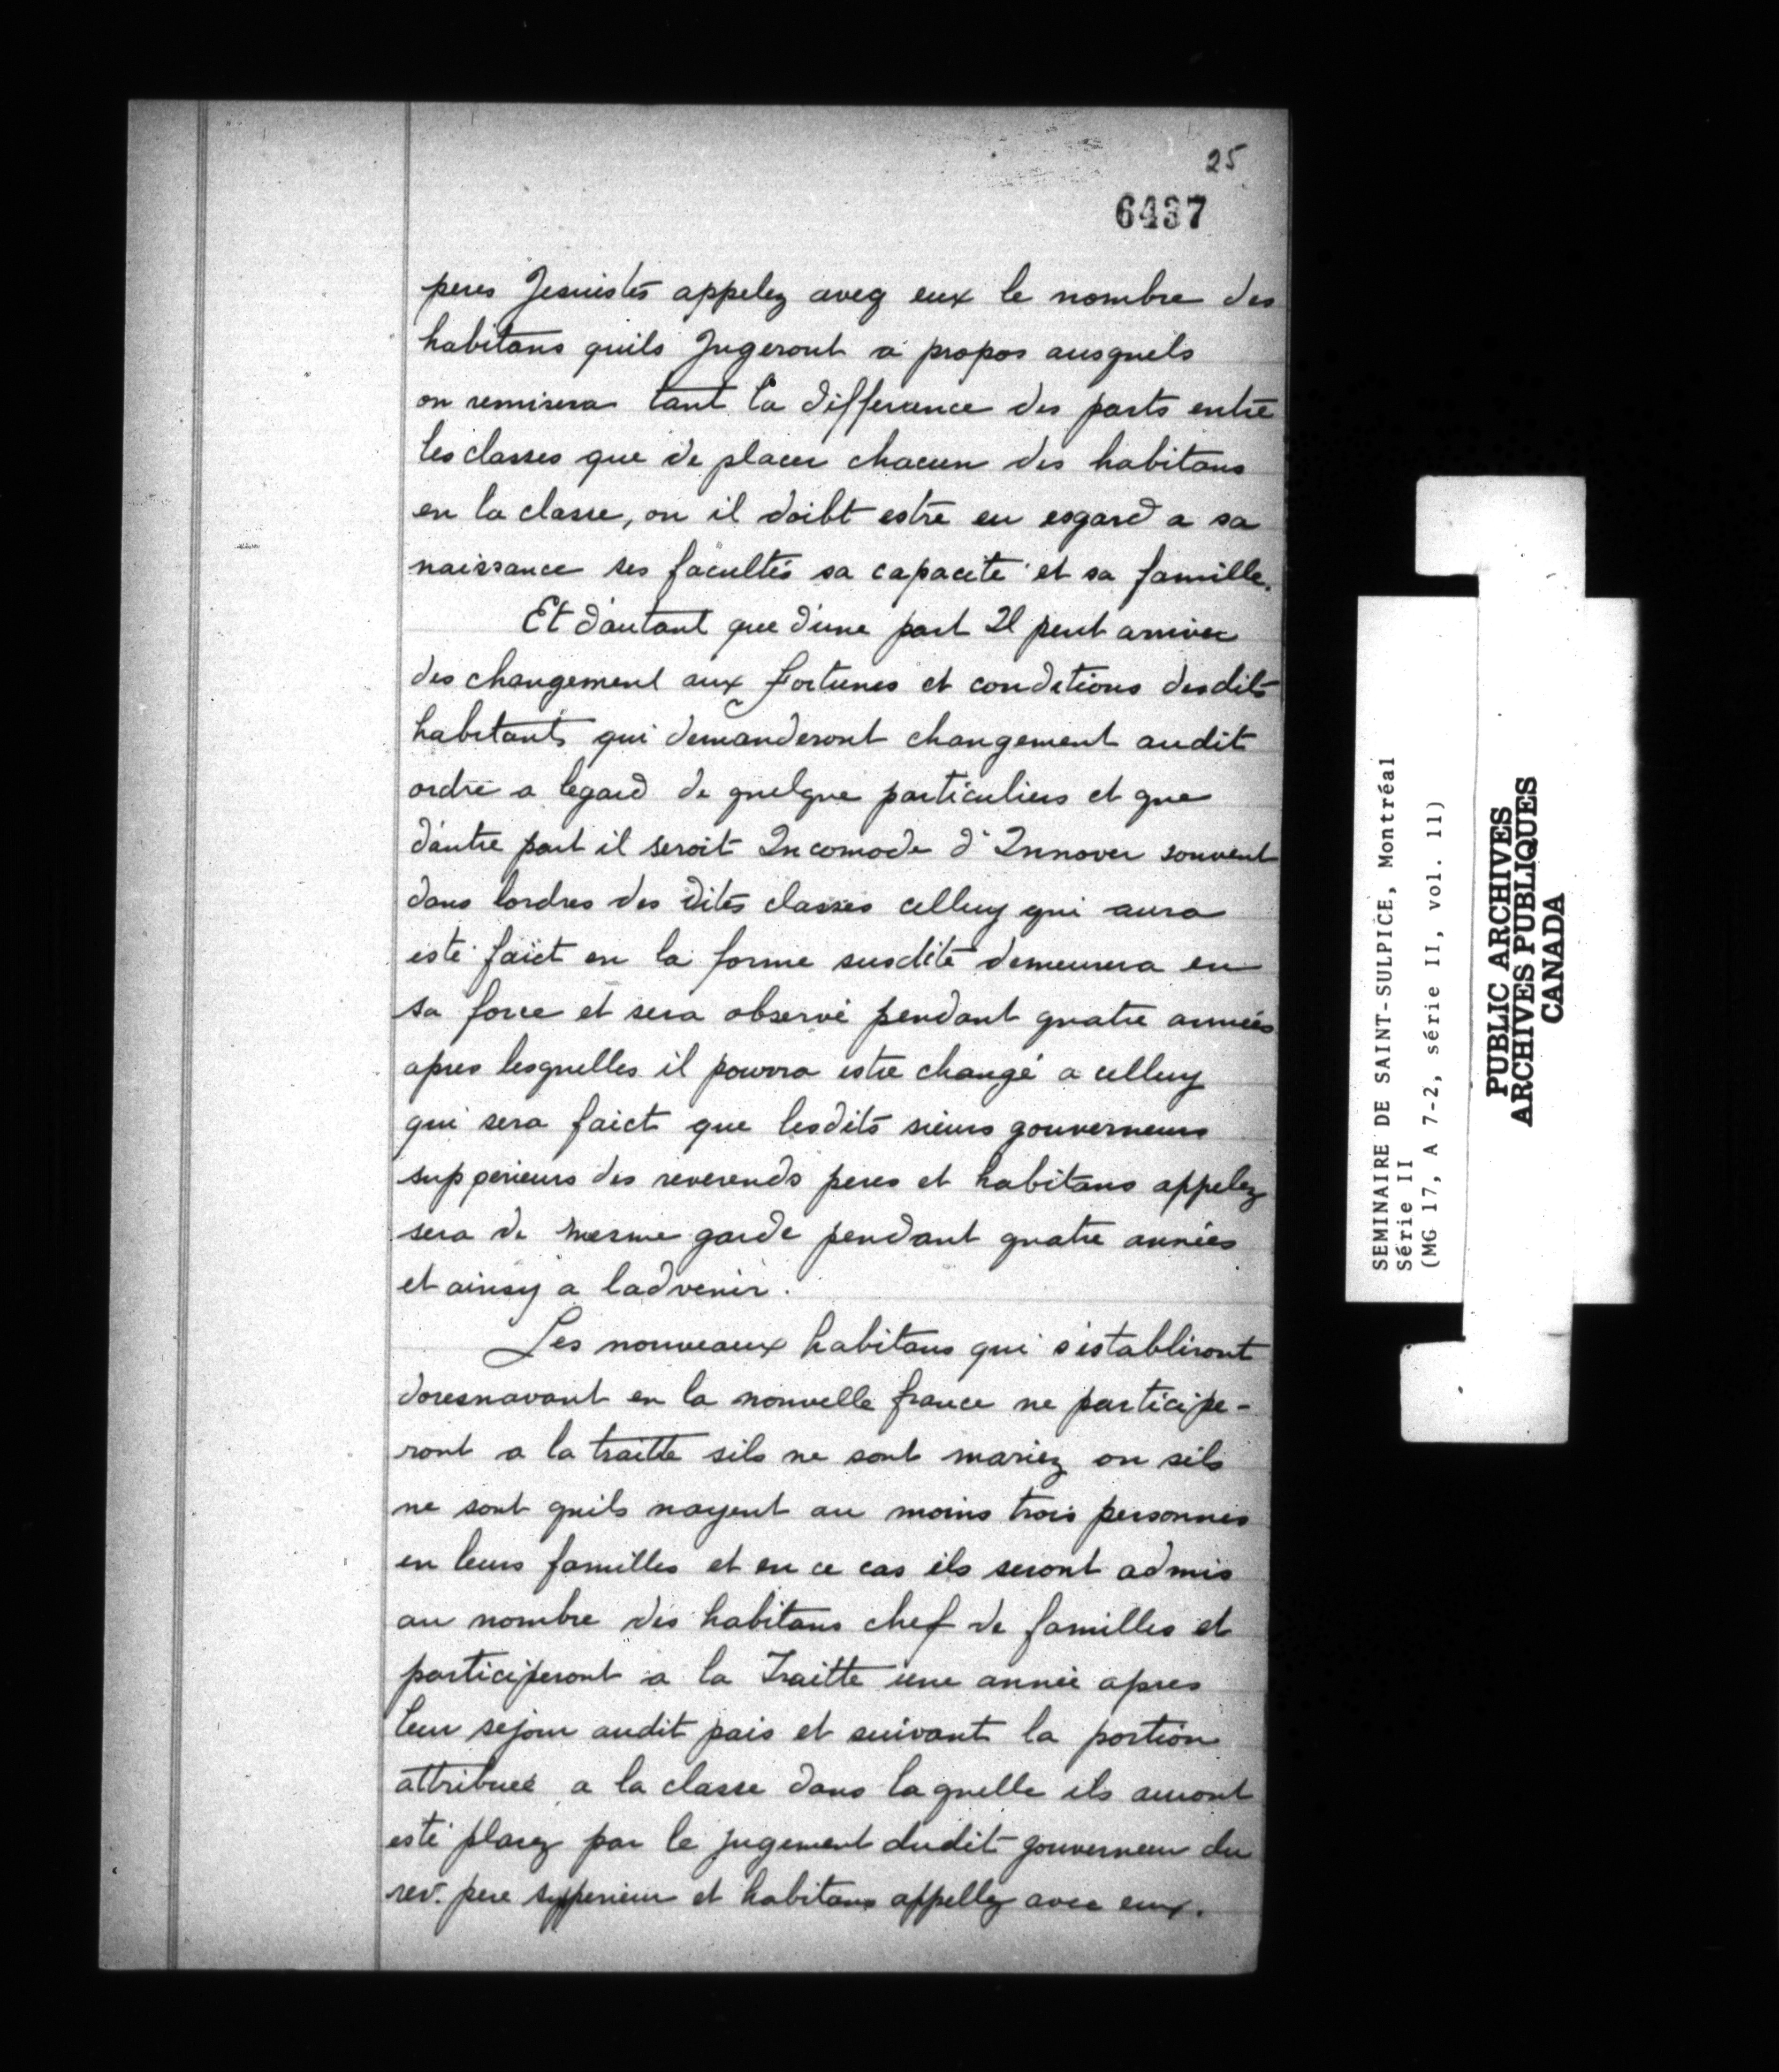 25
6437
peres Jesuistes appelez aveq eux le nombre des
habitans quils Jugeront a propos ausquels
on remisera tant la differance des parts entre
les classes que de placer chacun des habitans
en la classe, ou il doibt estre eu esgard a sa
naissance ses facultés sa capacite et sa famille.
Et d'autant que d'une part Il peut arriver
des changement aux fortunes et conditions desdits
habitants qui demanderont changement audit
ordre a legard de quelque particuliers et que
d'autre part il seroit Incomode d'Innover souvent
dans lordres des dites classes celluy qui aura
esté faict en la forme susdite demeurera en
sa force et sera observé pendant quatre années
apres lesquelles il pourra estre changé a celluy
qui sera faict que lesdits sieurs gouverneurs
supperieurs des reverends peres et habitans appelez
sera de mesme garde pendant quatre années
et ainsy a ladvenir.
Les nouveaux habitans qui s'establiront
doresnavant en la nouvelle france ne participe-
ront a la traitte sils ne sont mariez ou sils
ne sont quils nayent au moins trois personnes
en leurs familles et en ce cas ils seront admis
au nombre des habitans chef de familles et
participeront a la Traitte une année apres
leur sejour audit pais et suivant la portion
attribuée a la classe dans laquelle ils auront
esté plasez par le jugement dudit gouverneur du
rev. pere supperieur et habitans appellez avec eux.
SEMINAIRE DE SAINT-SULPICE, Montréal
Série II
(MG 17, A 7-2, série II, vol. 11)
PUBLIC ARCHIVES
ARCHIVES PUBLIQUES
CANADA